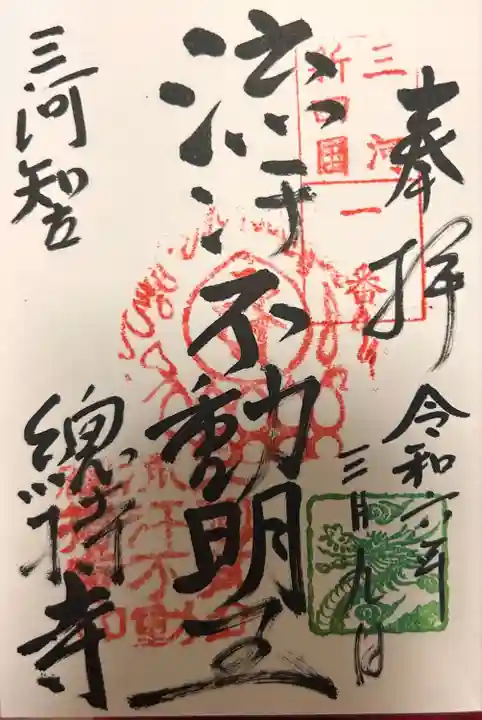 奉拝
令和六年
三月九日
三河
新四国
一番
流汗不動明王
三河知立
總持寺